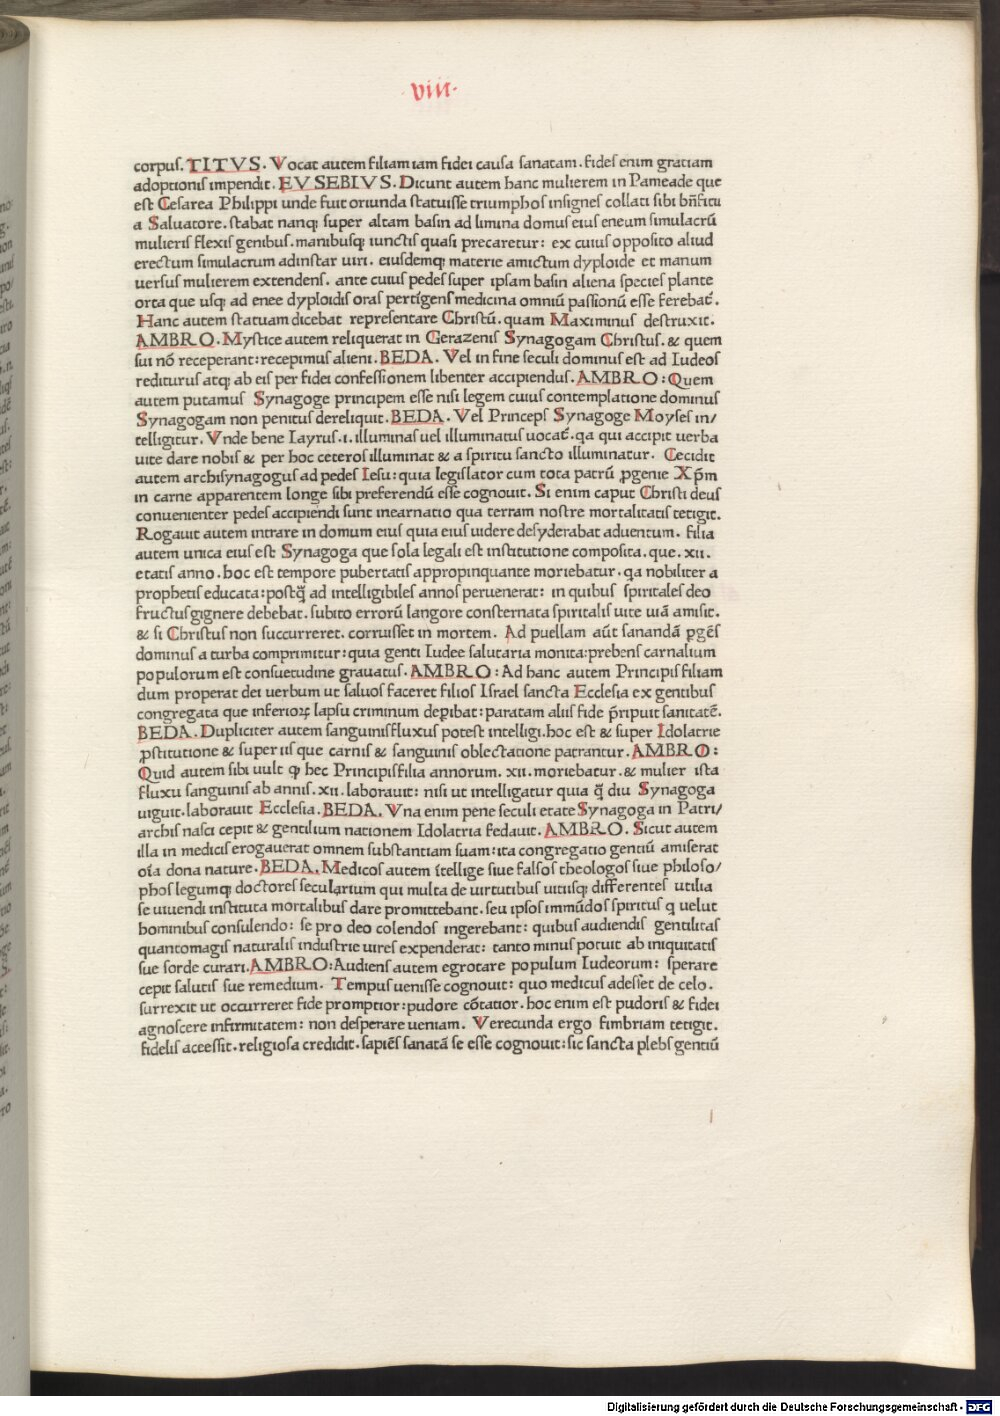 viii.
corpuſ. TITVS. Vocat autem filiam iam fidei cauſa ſanatam. fideſ enim gratiam
adoptioniſ impendit. EVSEBIVS. Dicunt autem hanc mulierem in Pameade que
eſt Ceſarea Philippi unde fuit oriunda ſtatuiſſe triumphoſ inſigneſ collati ſibi bn̄ficii
a Saluatore. ſtabat nanq; ſuper altam baſin ad limina domuſ eiuſ eneum ſimulacrū
mulieriſ flexiſ genibuſ. manibuſq; iunctiſ quaſi precaretur: ex cuiuſ oppoſito aliud
erectum ſimulacrum adinſtar uiri. eiuſdemq; materie amictum dyploide et manum
uerſuſ mulierem extendenſ. ante cuiuſ pedeſ ſuper ipſam baſin aliena ſpecieſ plante
orta que uſq; ad enee dyploidiſ oraſ pertīgenſ medicina omniū paſſionū eſſe ferebat̄.
Hanc autem ſtatuam dicebat repreſentare Chriſtū. quam Maximinuſ deſtruxit.
AMBRO. Myſtice autem reliquerat in Gerazeniſ Synagogam Chriſtuſ. & quem
ſui nō receperant: recepimuſ alieni. BEDA. Vel in fine ſeculi dominuſ eſt ad Iudeoſ
rediturus atq; ab eiſ per fidei confeſſionem libenter accipienduſ. AMBRO: Quem
autem putamuſ Synagoge principem eſſe niſi legem cuiuſ contemplatione dominuſ
Synagogam non penituſ dereliquit. BEDA. Vel Princepſ Synagoge Moyſeſ in/
telligitur. Vnde bene Iayruſ .i. illuminaſ uel illuminatuſ uocat̄. qa qui accipit uerba
uite dare nobiſ & per hoc ceteroſ illuminat & a ſpiritu ſancto illuminatur. Cecidit
autem archiſynagoguſ ad pedeſ Ieſu: quia legiſlator cum tota patrū ꝓgenie Xp̄m
in carne apparentem longe ſibi preferendū eſſe cognouit. Si enim caput Chriſti deuſ
conuenienter pedeſ accipiendi ſunt inearnatio qua terram noſtre mortalitatiſ tetigit.
Rogauit autem intrare in domum eiuſ quia eiuſ uidere deſyderabat aduentum. filia
autem unica eiuſ eſt Synagoga que ſola legali eſt inſtitutione compoſita. que. xii.
etatiſ anno. hoc eſt tempore pubertatiſ appropinquante moriebatur. qa nobiliter a
prophetiſ educata: poſtq̄ ad intelligibileſ annoſ peruenerat: in quibuſ ſpiritaleſ deo
fructuſ gignere debebat. ſubito errorū langore conſternata ſpiritaliſ uite uiā amiſit.
& ſi Chriſtuſ non ſuccurreret. corruiſſet in mortem. Ad puellam aūt ſanandā ꝑgēſ
dominuſ a turba comprimitur: quia genti Iudee ſalutaria monita: prebenſ carnalium
populorum eſt conſuetudine grauatuſ. AMBRO: Ad hanc autem Principiſ filiam
dum properat dei uerbum ut ſaluoſ faceret filioſ Iſrael ſancta Eccleſia ex gentibuſ
congregata que inferioꝝ lapſu criminum deꝑibat: paratam aliiſ fide p̄ripuit ſanitatē.
BEDA. Dupliciter autem ſanguiniſ fluxuſ poteſt intelligi. hoc eſt & ſuper Idolatrie
ꝓſtitutione & ſuper iiſ que carniſ & ſanguiniſ oblectatione patrantur. AMBRO:
Quid autem ſibi uult ꝙ hec Principiſ filia annorum. xii. moriebatur. & mulier iſta
fluxu ſanguiniſ ab anniſ. xii. laborauit: niſi ut intelligatur quia q̄ diu Synagoga
uiguit. laborauit Eccleſia. BEDA. Vna enim pene ſeculi etate Synagoga in Patri/
archiſ naſci cepit & gentilium nationem Idolatria fedauit. AMBRO. Sicut autem
illa in mediciſ erogauerat omnem ſubſtantiam ſuam: ita congregatio gentiū amiſerat
oīa dona nature. BEDA. Medicoſ autem ītellige ſiue falſoſ theologoſ ſiue philoſo/
phoſ legumq; doctoreſ ſecularium qui multa de uirtutibuſ uitiiſq; differenteſ utilia
ſe uiuendi inſtituta mortalibuſ dare promittebant. ſeu ipſoſ immūdoſ ſpirituſ q uelut
hominibuſ conſulendo: ſe pro deo colendoſ ingerebant: quibuſ audiendiſ gentilitaſ
quantomagiſ naturaliſ induſtrie uireſ expenderat: tanto minuſ potuit ab iniquitatiſ
ſue ſorde curari. AMBRO: Audienſ autem egrotare populum Iudeorum: ſperare
cepit ſalutiſ ſue remedium. Tempuſ ueniſſe cognouit: quo medicuſ adeſſet de celo.
ſurrexit ut occurreret fide promptior: pudore cōtatior. hoc enim eſt pudoriſ & fidei
agnoſcere infirmitatem: non deſperare ueniam. Verecunda ergo fimbriam tetigit.
fideliſ aceeſſit. religioſa credidit. ſapiēſ ſanatā ſe eſſe cognouit: ſic ſancta plebſ gentiū
Digitalisierung gefördert durch die Deutsche Forschungsgemeinschaft - DFG